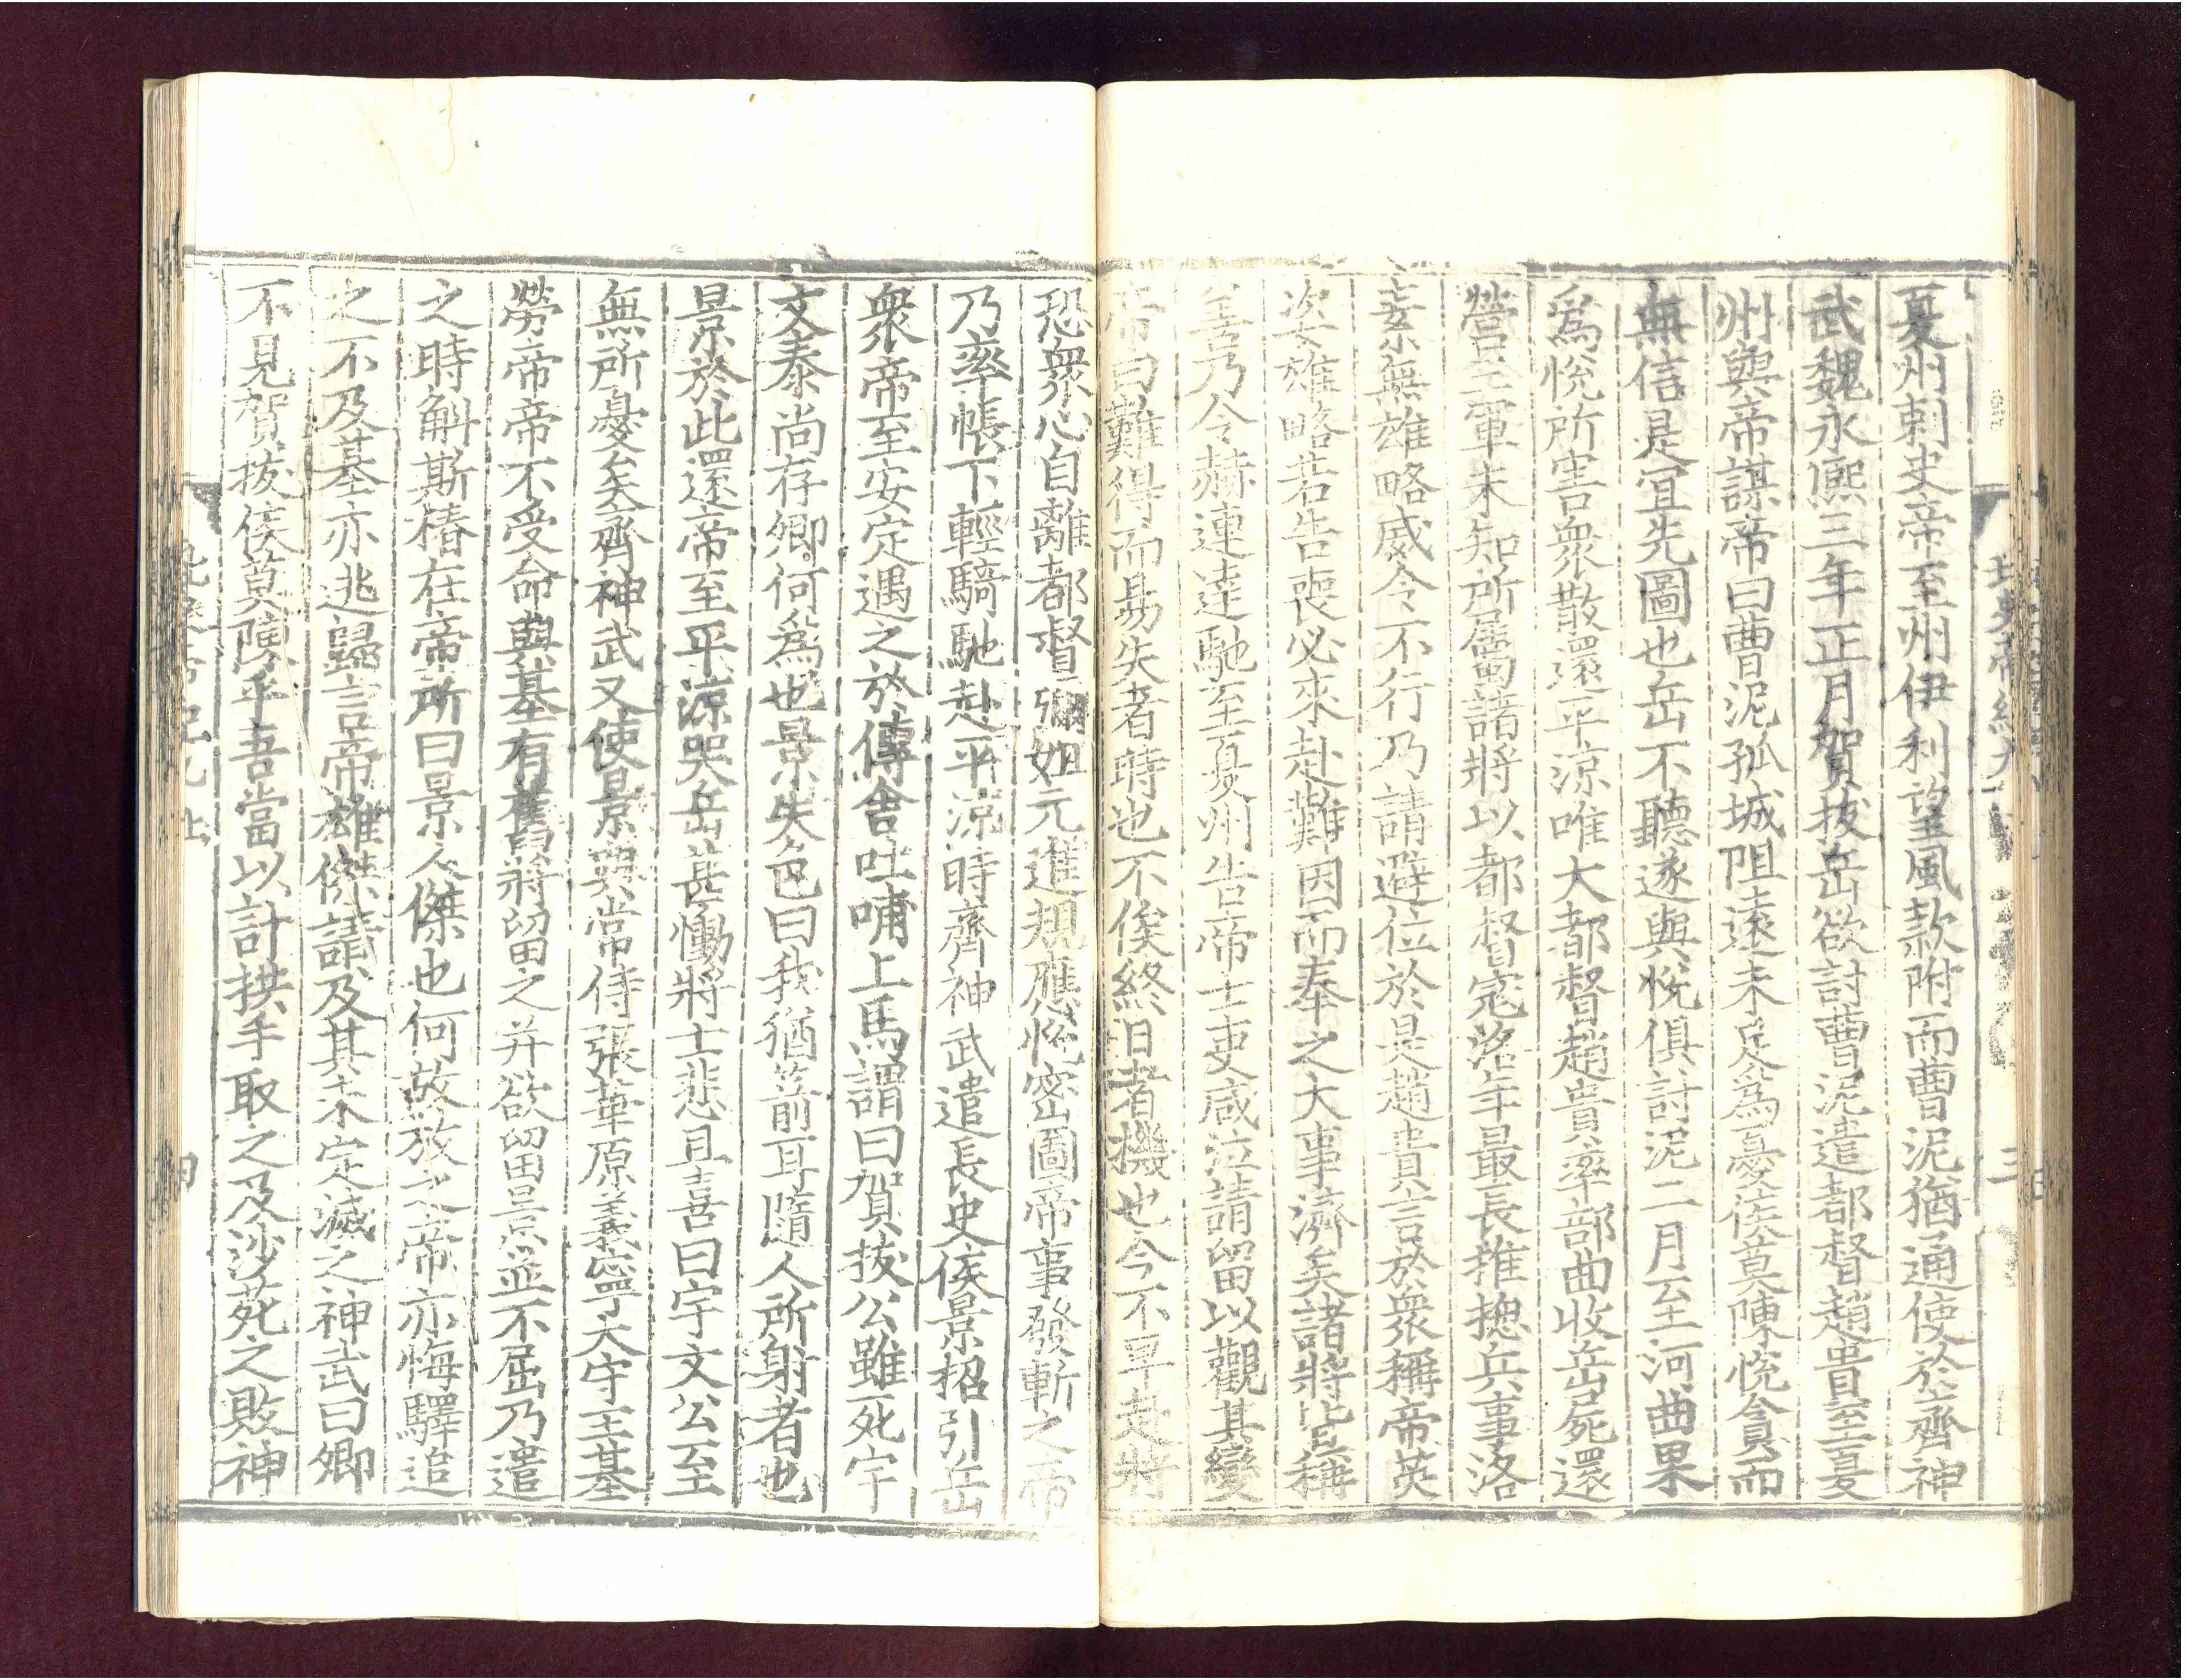 夏州刺史帝至州伊利望風款附而曹泥猶通使於齊神
武魏永熙三年正月賀拔岳欲討曹泥遣都督趙貴至夏
州與帝謀帝曰曹泥孤城阻遠未足為憂侯莫陳悅貪而
無信是宜先圖也岳不聽遂與悅俱討泥二月至河曲果
爲悅所害衆散還平涼唯大都督趙貴率部曲收岳屍還
營三軍未知所屬諸將以都督寇洛年最長推摠兵事洛
素無雄略威令不行乃請避位於是趙貴言於衆稱帝英
姿雄略若告喪必來赴難因而奉之大事濟矣諸將皆稱
善乃令赫連達馳至夏州告帝士吏咸泣請留以觀其變
帝曰難得而易失者時也不俟終日者機也今不早赴將
恐衆心自離都督彌姐元進規應悅密圖帝事發斬之帝
乃率帳下輕騎馳赴平涼時齊神武遣長史侯景招引岳
衆帝至安定遇之於傳舍吐哺上馬謂曰賀拔公雖死宇
文泰尚存卿何爲也景失色曰我猶箭耳隨人所射者也
景於此還帝至平涼哭岳甚慟將士悲且喜曰宇文公至
無所憂矣齊神武又使景與常侍張華原義寧太守王基
勞帝帝不受命與基有舊將留之并欲留景並不屈乃遣
之時斛斯椿在帝所曰景人傑也何故放之帝亦悔驛追
之不及基亦逃歸言帝雄傑請及其未定滅之神武曰卿
不見賀拔侯莫陳乎吾當以計拱手取之及沙苑之敗神